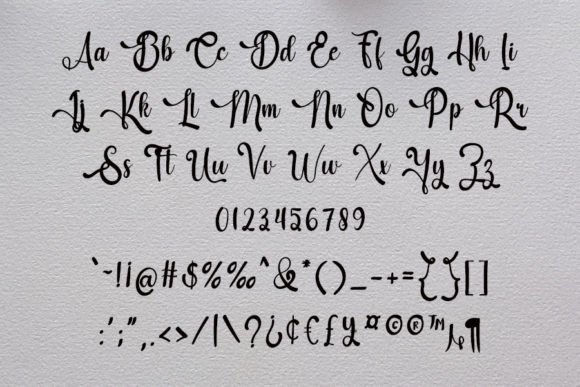 Aa Bb Cc Dd Ee Ff Gg Hh Ii
Jj Kk Ll Mm Nn Oo Pp Rr
Ss Tt Uu Vv Ww Xx Yy Zz
0123456789
`~!¡@#$%‰^&*()_-+={}[]
:';",.<>/|\?¿¢€£¥¤©®™¶